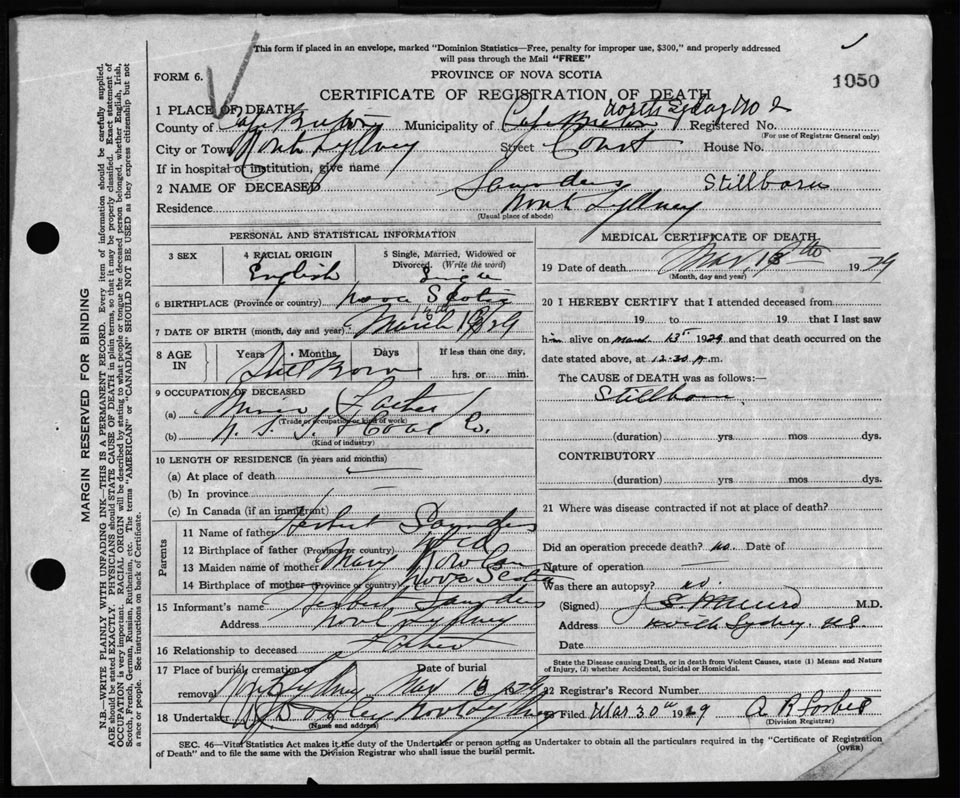 This form if placed in an envelope, marked "Dominion Statistics—Free, penalty for improper use, $300," and properly addressed
will pass through the Mail "FREE"
FORM 6.
PROVINCE OF NOVA SCOTIA
1050
CERTIFICATE OF REGISTRATION OF DEATH
1 PLACE OF DEATH North Sydney No 2
County of Cape Breton Municipality of Cape Breton Registered No.
(For use of Registrar General only)
City or Town North Sydney Street Court House No.
If in hospital or institution, give name
2 NAME OF DECEASED Saunders Stillborn
Residence North Sydney
(Usual place of abode)
PERSONAL AND STATISTICAL INFORMATION
3 SEX
4 RACIAL ORIGIN English
5 Single, Married, Widowed or Divorced. (Write the word) Single
6 BIRTHPLACE (Province or country) Nova Scotia
7 DATE OF BIRTH (month, day and year) March 13th 1929
8 AGE IN Years Months Days If less than one day,
Still Born hrs. or min.
9 OCCUPATION OF DECEASED
(a) Miner Father
(Trade or occupation or kind of work)
(b) N. S. S. & Coal Co.
(Kind of industry)
10 LENGTH OF RESIDENCE (in years and months)
(a) At place of death
(b) In province
(c) In Canada (if an immigrant)
Parents
11 Name of father Herbert Saunders
12 Birthplace of father (Province or country) Nfld
13 Maiden name of mother Mary
14 Birthplace of mother (Province or country) Nova Scotia
15 Informant's name Herbert Saunders
Address North Sydney
16 Relationship to deceased Father
17 Place of burial, cremation or removal Nth Sydney Date of burial Mar 13 1929
18 Undertaker W. Dooley North Sydney
(Name and address)
MEDICAL CERTIFICATE OF DEATH
19 Date of death Mar. 13th 1929
(Month, day and year)
20 I HEREBY CERTIFY that I attended deceased from
19 to 19 that I last saw
him alive on March 13th 1929 and that death occurred on the
date stated above, at 12.30 A.m.
The CAUSE of DEATH was as follows:—
Stillborn
(duration) yrs. mos dys.
CONTRIBUTORY
(duration) yrs mos dys.
21 Where was disease contracted if not at place of death?
Did an operation precede death? no. Date of
Nature of operation —
Was there an autopsy? no.
(Signed) M.D.
Address North Sydney. N.S.
Date
State the Disease causing Death, or in death from Violent Causes, state (1) Means and Nature
of Injury, (2) whether Accidental, Suicidal or Homicidal.
22 Registrar's Record Number
23 Filed Mar 30th 1929 A R Forbes
(Division Registrar)
SEC. 46—Vital Statistics Act makes it the duty of the Undertaker or person acting as Undertaker to obtain all the particulars required in the "Certificate of Registration
of Death" and to file the same with the Division Registrar who shall issue the burial permit.
(OVER)
MARGIN RESERVED FOR BINDING
N.B.—WRITE PLAINLY WITH UNFADING INK—THIS IS A PERMANENT RECORD. Every item of information should be carefully supplied.
AGE should be stated EXACTLY. PHYSICIANS should STATE CAUSE OF DEATH in plain terms, so that it may be properly classified. Exact statement of
OCCUPATION is very important. RACIAL ORIGIN will be described by stating to what people or tongue the deceased person belonged, whether English, Irish,
Scotch, French, German, Russian, Ruthenian, etc. The terms "AMERICAN" or "CANADIAN" SHOULD NOT BE USED as they express citizenship but not
a race or people. See instructions on back of Certificate.